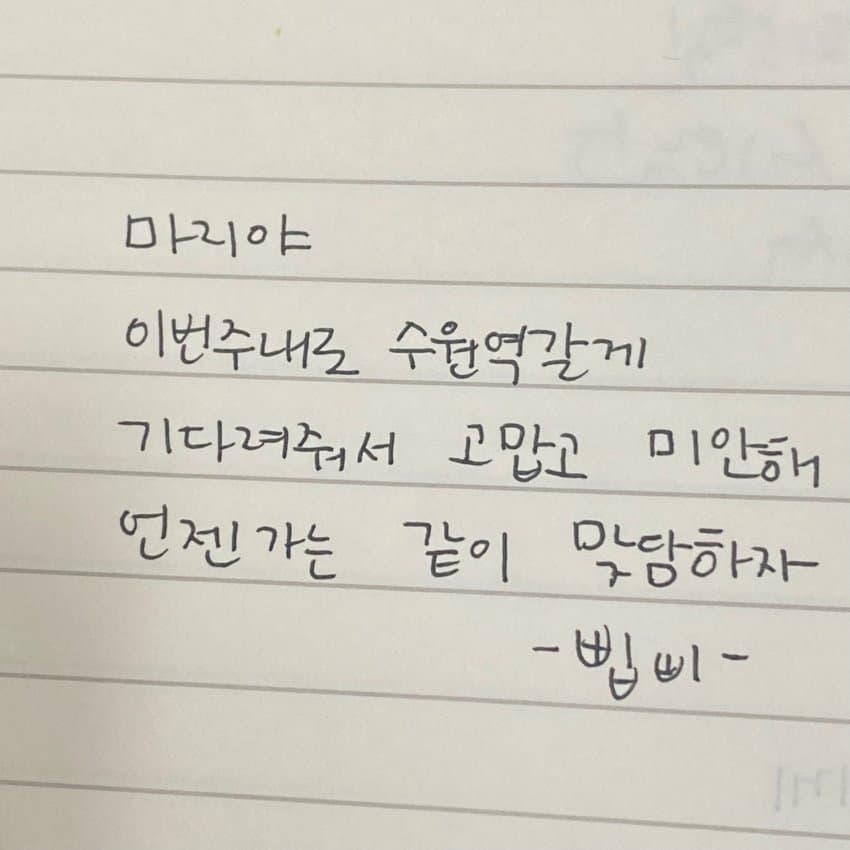 마리야
이번주내로 수원역갈게
기다려줘서 고맙고 미안해
언젠가는 같이 맞담하자
-삡삐-